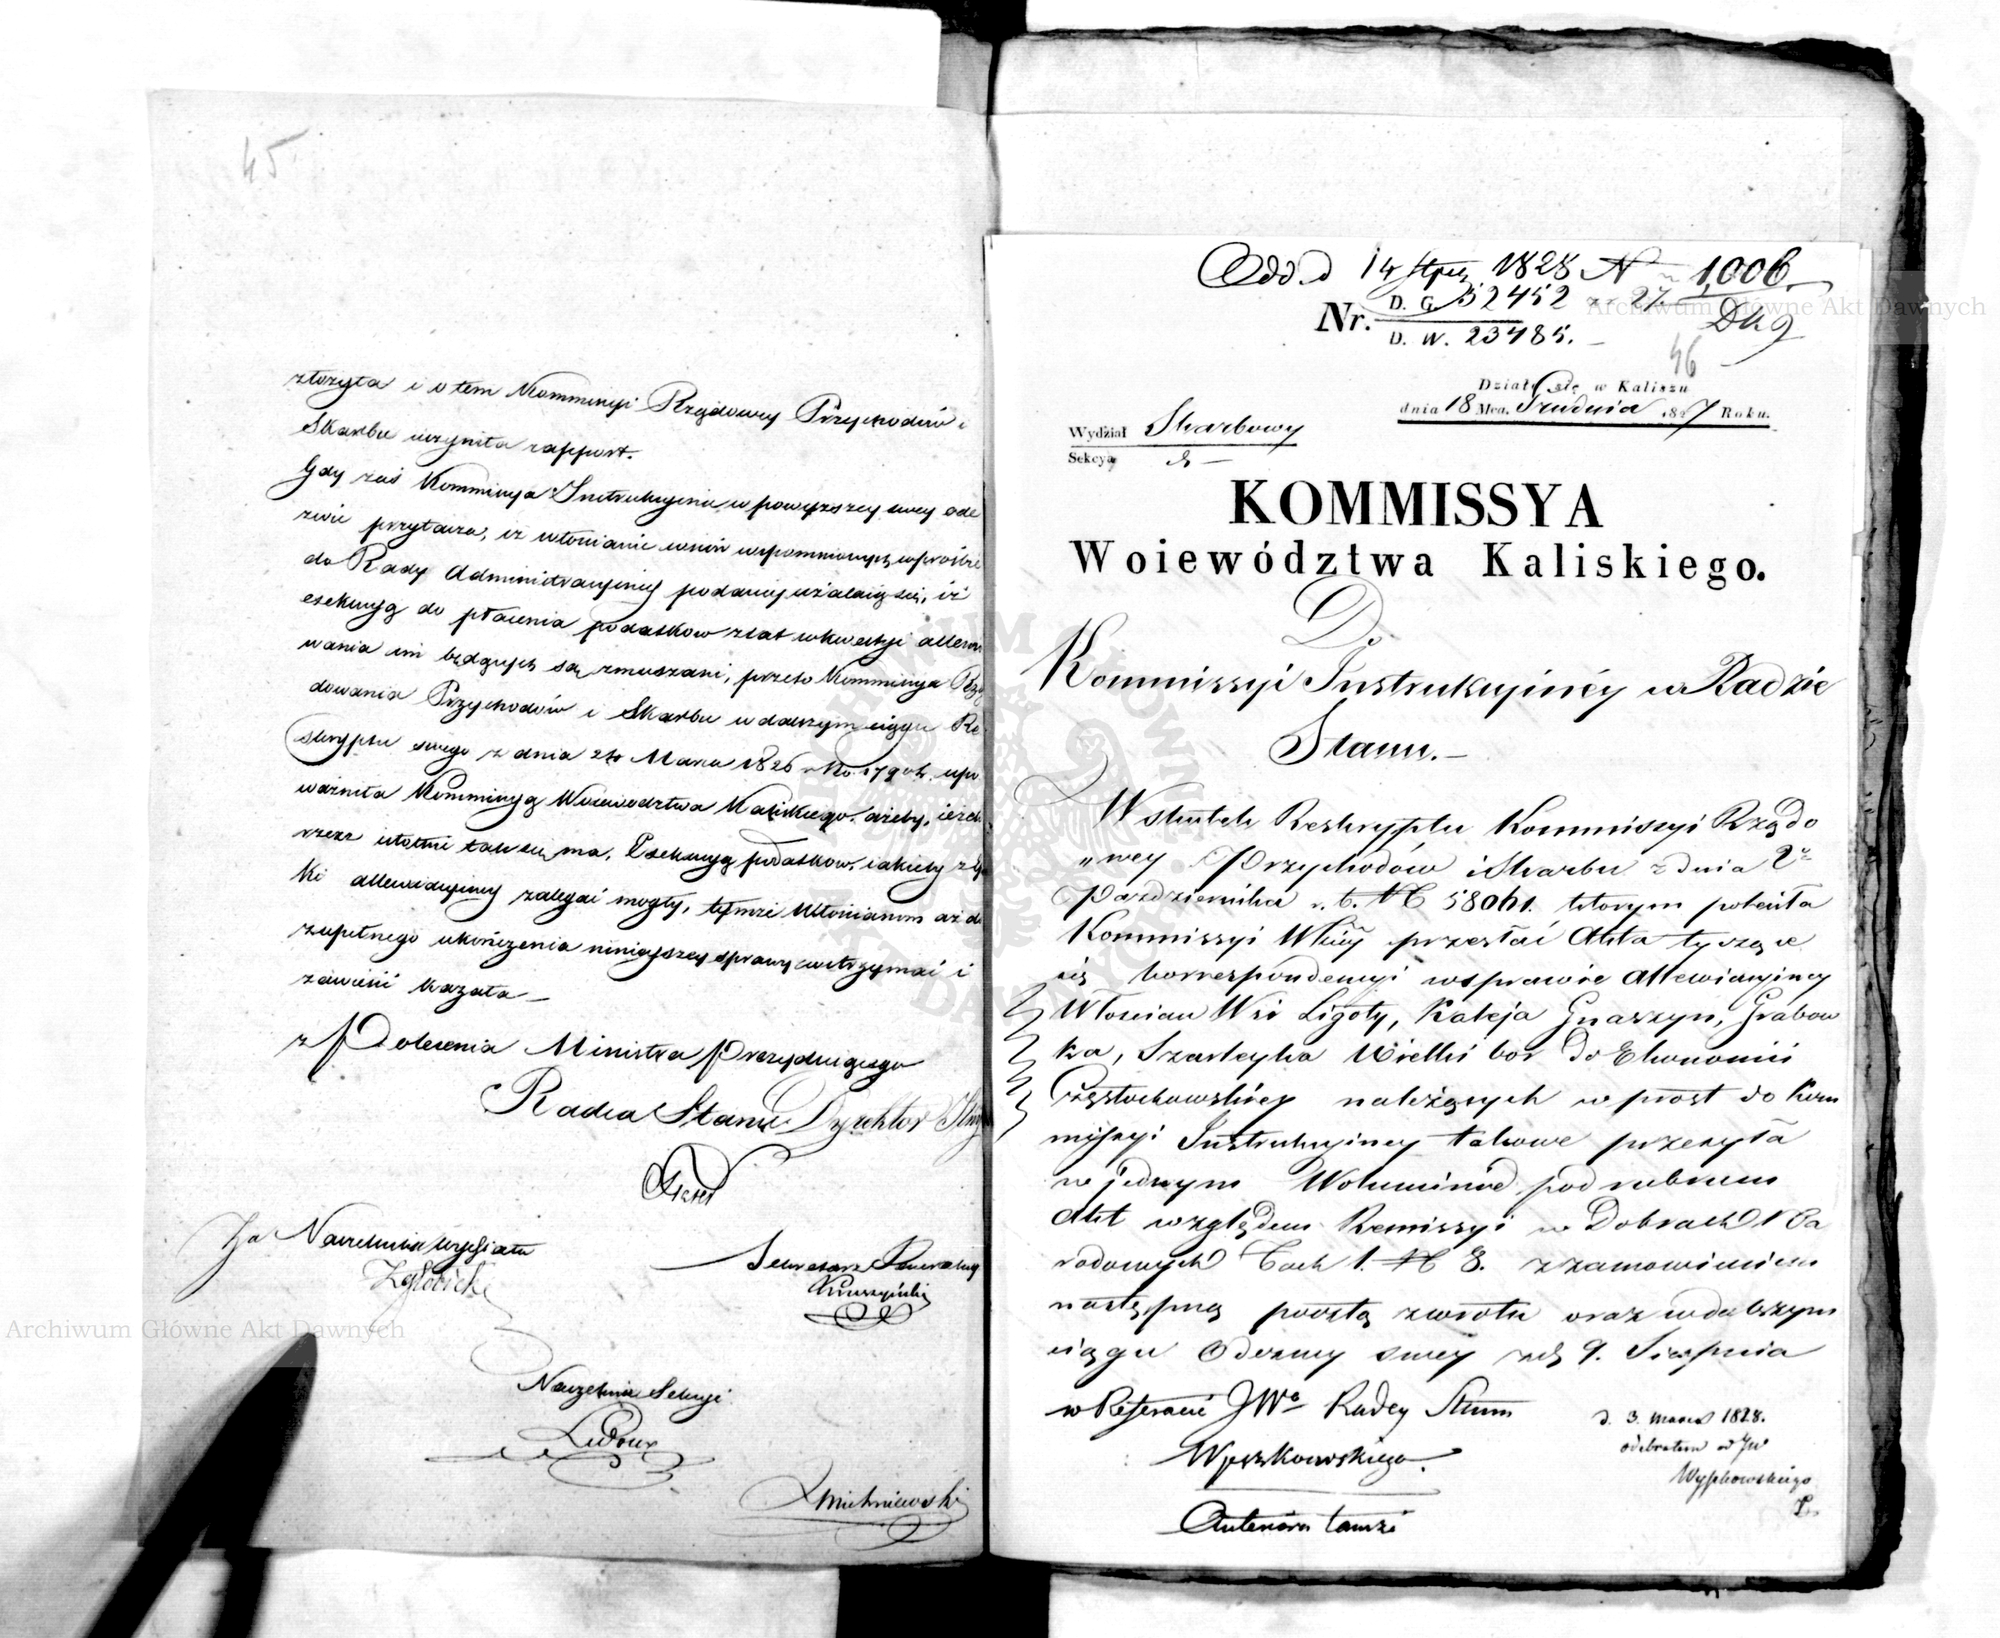 45
złożyła i o tem Kommissyi Rządowey Przychodów i
Skarbu uczyniła rapport.
Gdy zaś Kommissya Instrukcyina w powyższey swey ode
zwie przytacza, iż włościanie wsiów wspomnionych w prośbie
do Rady Administracyiney podaney użalaią się, iż
exekucyą do płacenia podatków z lat w kwestyi allewio
wania im będących są zmuszani, przeto Kommissya Rzą
dowania Przychodów i Skarbu w dalszym ciągu Re
skryptu swego z dnia 24 Marca 1826 r. No. 17904. upo
ważniła Kommissyą Woiewództwa Kaliskiego. ażeby, ieżeli
rzecz istotnie tak się ma, Exekucyą podatków, iakieby z
ki allewiacyiney zalegać mogły, tymże Włościanom aż do
zupełnego ukończenia ninieyszey sprawy wstrzymać i
zawiesić kazała _
z Polecenia Ministra Prezyduiącego
Radca Stanu Dyrektor
Za Naczelnika Wydziału
Sekretarz Generalny
Kruszyński
Naczelnik Sekcyi
Ledoux
Chmielewski
Odd. d 14 Stycz 1828 N 1,006.
Nr. D. G. 52452 27.
D. W. 23485.
46
Działo się w Kaliszu
dnia 18 Mca. Grudnia 1827 Roku.
Wydział Skarbowy
Sekcya
KOMMISSYA
Woiewództwa Kaliskiego.
Do
Kommissyi Instrukcyinéy w Radzie
Stanu.
W skutek Reskryptu Kommissyi Rządo
"wey Przychodów i Skarbu z dnia 2
Pazdziernika r. b. N 58061. którym poleciła
Kommissyi Wkiéy przesłać Akta tyczące
się korrespondencyi w sprawie allewiacyiney
Włościan Wsi Ligoty, Kaleja Gnaszyn, Grabow
ka, Szarleyka Wielki bor do Ekonomii
Częstochowskiey należących w prost do Kom
missyi Instrukcyiney takowe przesyła
w jednym Woluminie pod rubrum
Akt względem Remissyi w Dobrach Na
rodowych 1. N 8. z zamowieniem
następną pocztą zwrotu oraz w dalszym
ciągu Odezwy swey z d. 9. Sierpnia
w Referacie JWo Radcy Stanu
Wyczechowskiego.
d. 3. Marca 1828.
odebrałem od JW
Wyczechowskiego
Archiwum Główne Akt Dawnych
Archiwum Główne Akt Dawnych
ARCHIWUM GŁÓWNE AKT DAWNYCH